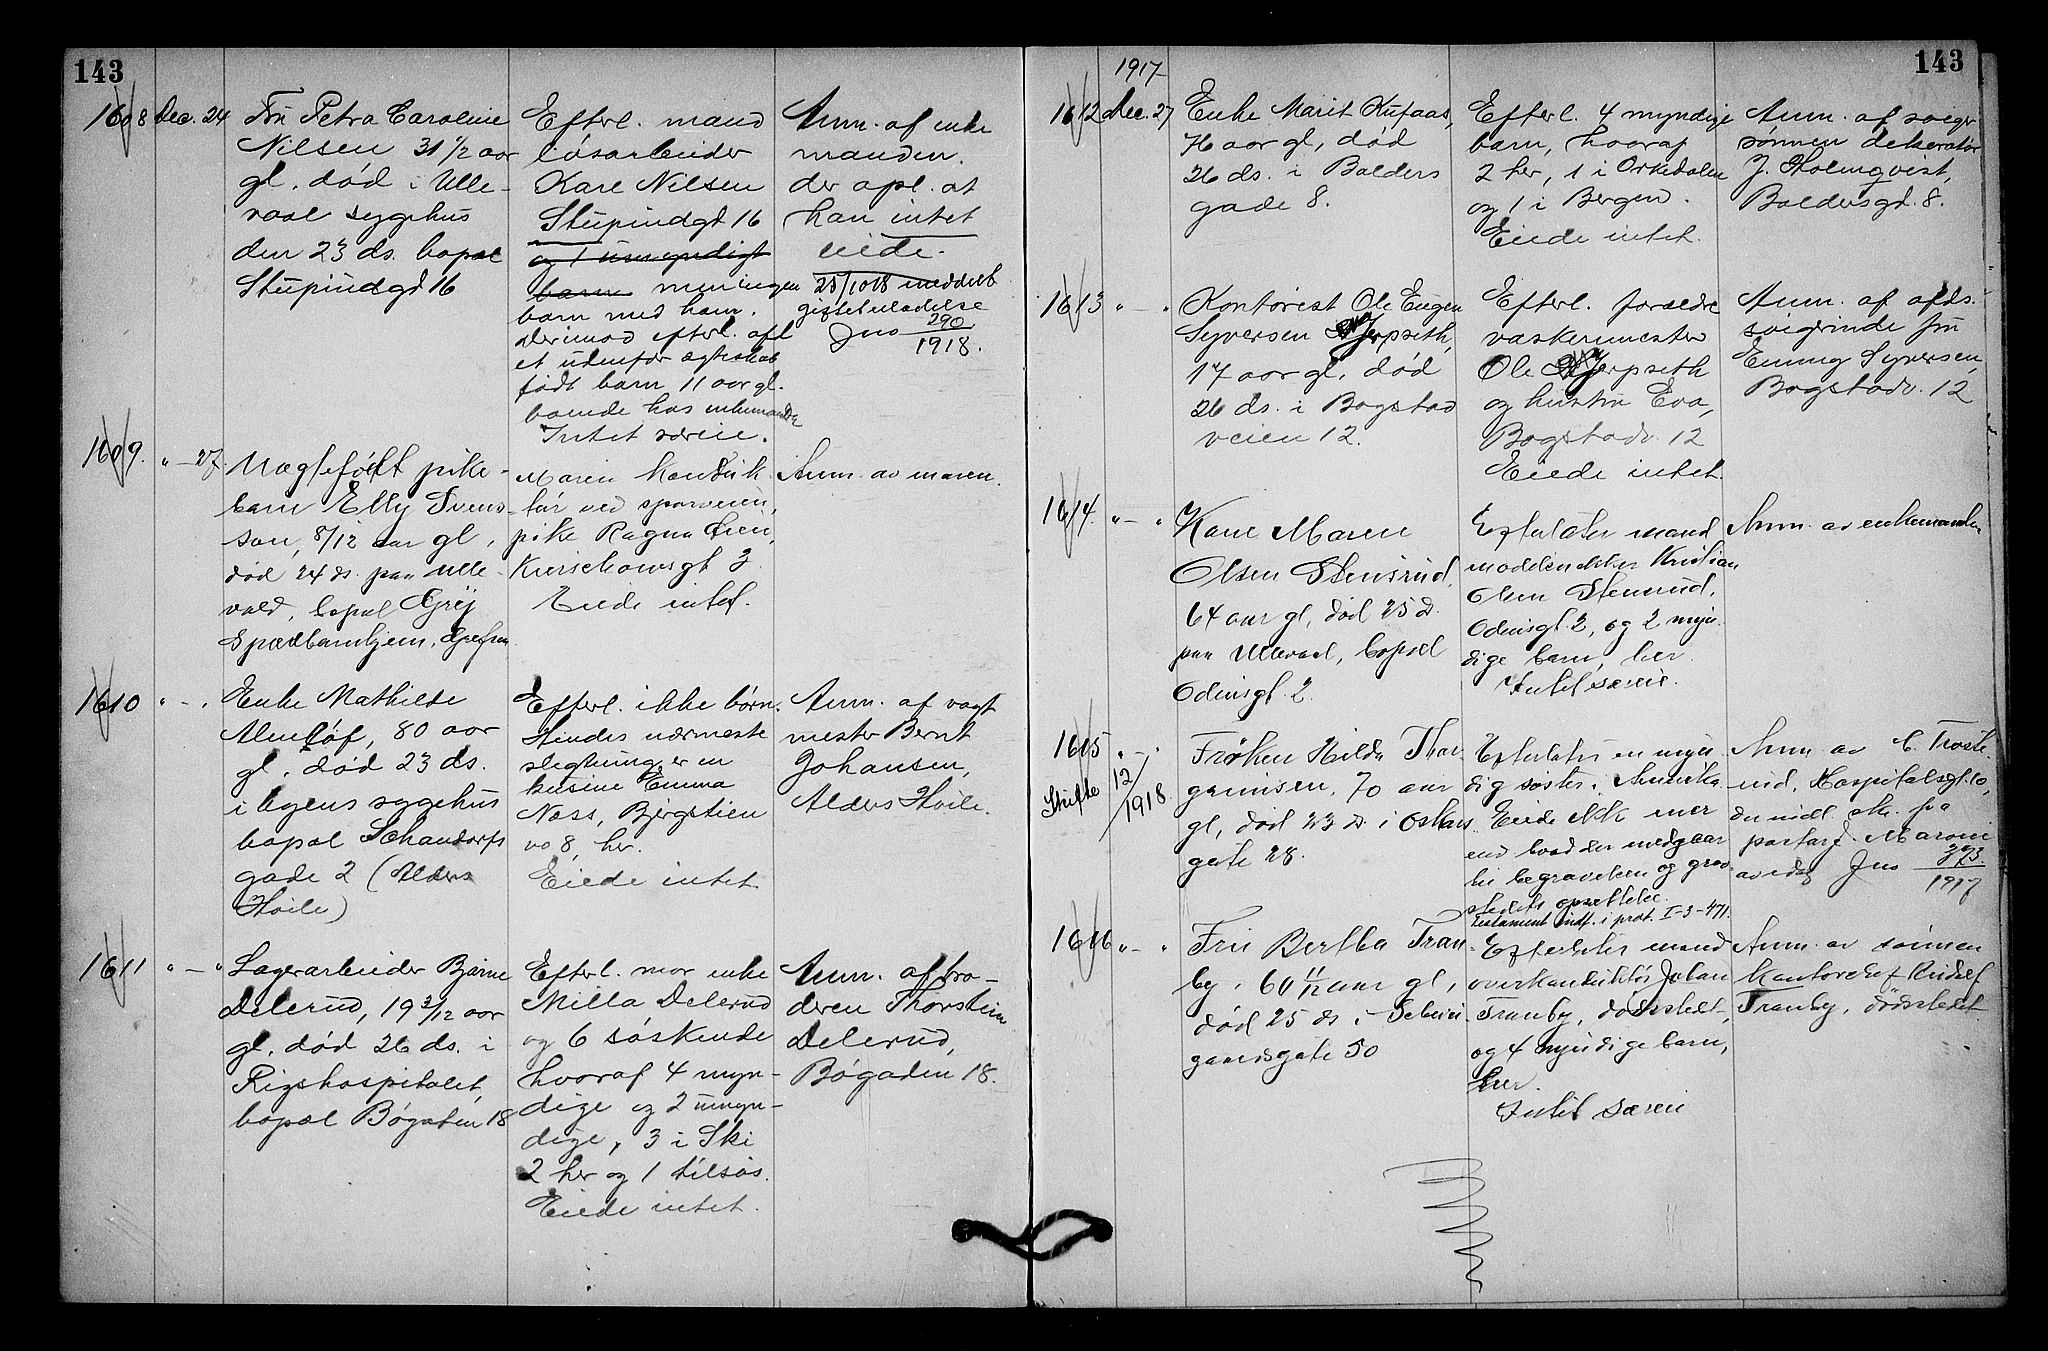 143
1608 Dec. 24
Fru Petra Caroline
Nilsen 31 1/2 aar
gl. død i Ulle-
vaal sygehus
den 23 ds. bopæl
Stupindgd 16
Efterl. mand
løsarbeider
Kare Nilsen
Stupindgd 16
og 1 umyndigt
barn men ingen
barn med ham.
Derimod efterl. afd
et udenfor ægteskab
født barn 11 aar gl.
boende hos enkemanden
Intet særeie.
Anm. af enke
manden.
der opl. at
han intet
eiede.
25/10 18 meddelt
giftetilladelse
Jno 290/1918.
1609. " — 27.
Uægtefødt pike-
barn Elly Svens-
son, 8/12 aar gl,
død 24 ds. paa Ulle-
vold, bopæl
Spædbarnhjem, Grefsen
Moren
ved sporveien,
pike Ragna Lien,
Kierschowsgt 3
Eiede intet.
Anm. av moren.
1610 " — "
Enke Mathilde
Almløf, 80 aar
gl. død 23 ds.
i byens sygehus
bopæl Schandorfs
gade 2 (Alders
Hvile)
Efterl. ikke børn.
Hendes nærmeste
slegtning er en
kusine Emma
Næss, Bjergstien
no 8, her.
Eiede intet
Anm. af vagt
mester Bernt
Johansen,
Alders Hvile.
1611 " — "
Lagerarbeider Bjarne
Delerud, 19 3/12 aar
gl. død 26 ds. i
Rigshospitalet,
bopæl Bøgaten 18
Efterl. mor enke
Milla Delerud
og 6 søskende
hvoraf 4 myn-
dige og 2 umyn-
dige, 3 i Ski
2 her og 1 tilsøs.
Eiede intet.
Anm. af bro-
deren Thorstein
Delerud,
Bøgaden 18.
143
1917
1612 Dec. 27
Enke Marit Kufaas,
76 aar gl, død
26 ds. i Balders
gade 8.
Efterl. 4 myndige
barn, hvoraf
2 her, 1 i Orkedalen
og 1 i Bergen.
Eiede intet.
Anm. af sviger
sønnen dekoratør
J. Holmqvist,
Baldersgd. 8.
1613 " — "
Kontorist Ole Eugen
Syversen Gjerpseth,
17 aar gl, død
26 ds. i Bogstad
veien 12.
Efterl. forældre
vaskerimester
Ole Gjerpseth
og hustru Eva,
Bogstadv. 12
Eiede intet.
Anm. af afds.
svigerinde fru
Emmy Syversen,
Bogstadv. 12
1614. " — "
Kone Maren
Olsen Stensrud,
64 aar gl, død 25 ds.
paa Ullevaal, bopæl
Odinsgt. 2
Efterlater mand
modelsnekker Kristian
Olsen Stensrud,
Odinsgt. 2, og 2 myn-
dige barn, her.
Intet særeie.
Anm. av enkemanden
1615 " — "
Skifte 12/1918
Frøken Hilda Thor-
grimsen, 70 aar
gl, død 23 ds i Oskars
gate 28.
Efterlater en myn-
dig søster i Amerika
Eiede ikke mer
end hvad der medgaar
til begravelsen og grav-
stedets opsettelse.
Testament indf. i prot. I-3-471.
Anm. av C. Troste-
rud, Hospitalsgt. 10,
der indl. skr. fra
pastor J. Maroni
av idag Jno 373/1917
1616 " — "
Fru Bertha Tran-
by, 60 11/12 aar gl,
død 25 ds i Schwei-
gaardsgate 50
Efterlater mand
overkonduktør Johan
Tranby, dødsstedet,
og 4 myndige barn,
her.
Intet særeie
Anm. av sønnen
kontorchef Rudolf
Tranby, dødsstedet